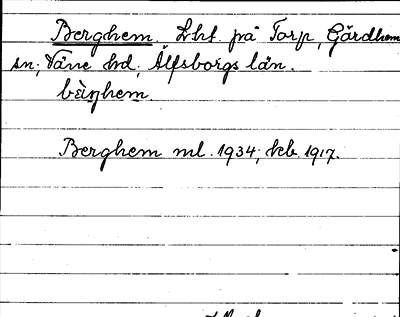 Berghem. Lht. på Torp, Gärdhem
sn; Väne hd; Älfsborgs län.
bæ̀rjhem.
Berghem ml. 1934; kb. 1917.